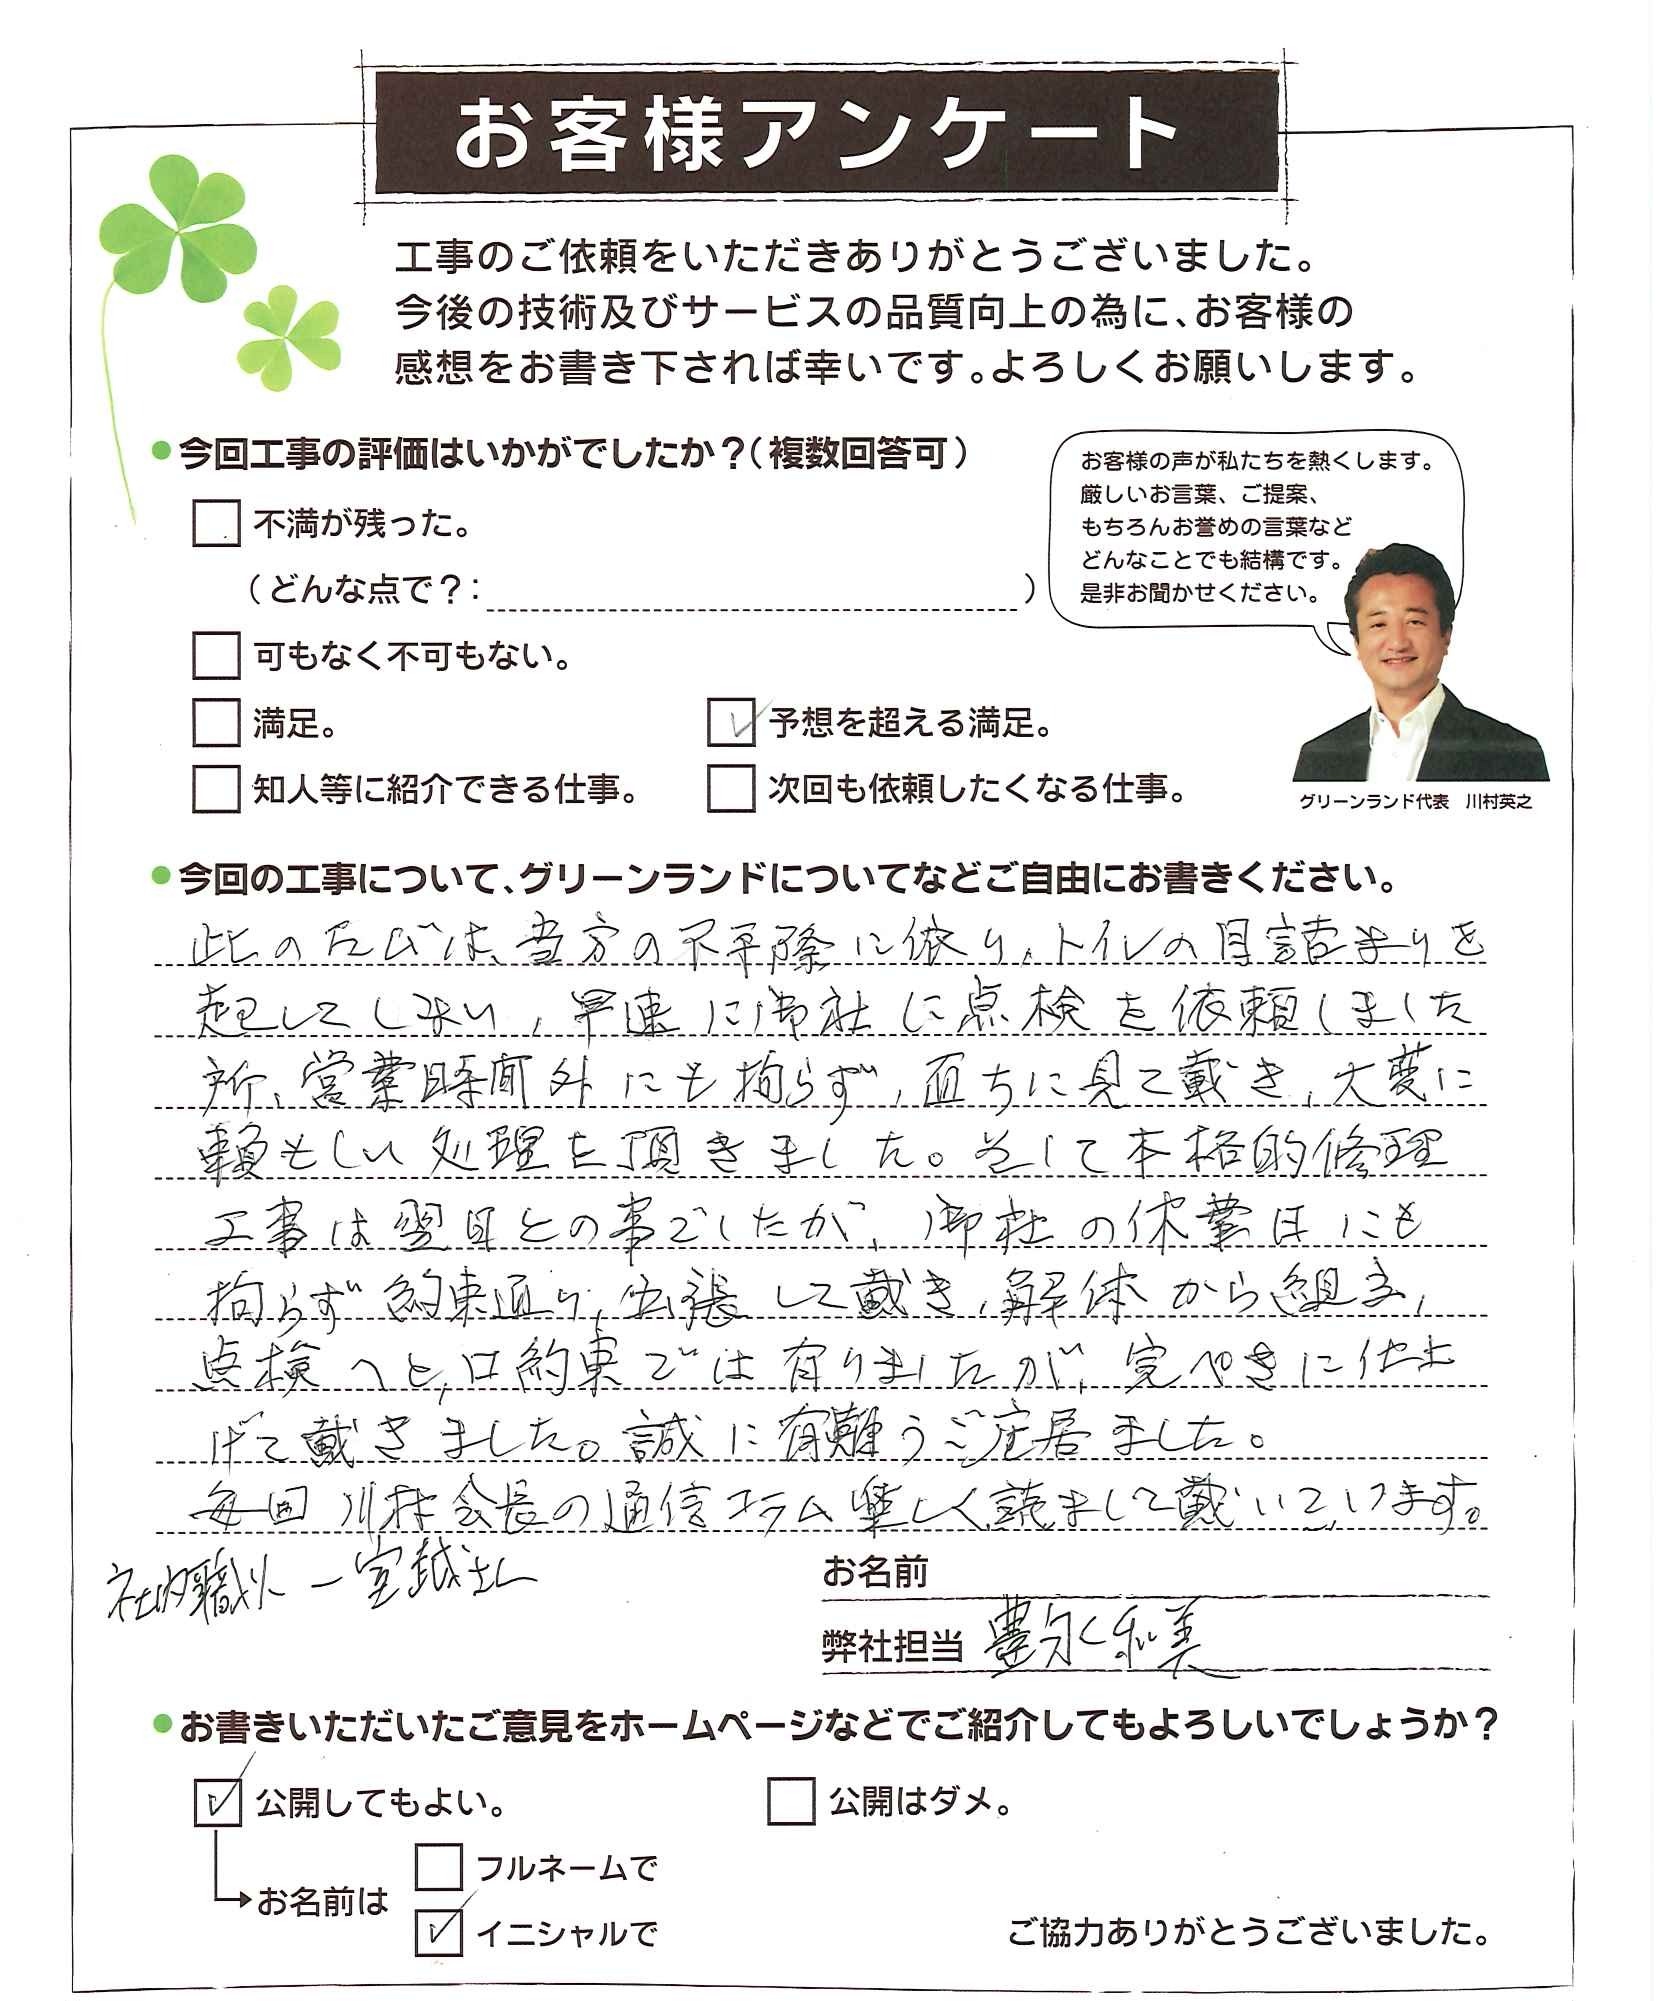 お客様アンケート
工事のご依頼をいただきありがとうございました。
今後の技術及びサービスの品質向上の為に、お客様の
感想をお書き下されば幸いです。よろしくお願いします。
●今回工事の評価はいかがでしたか？（複数回答可）
お客様の声が私たちを熱くします。
厳しいお言葉、ご提案、
もちろんお誉めの言葉など
どんなことでも結構です。
是非お聞かせください。
不満が残った。
（どんな点で？：　）
可もなく不可もない。
満足。
予想を超える満足。
知人等に紹介できる仕事。
次回も依頼したくなる仕事。
グリーンランド代表　川村英之
●今回の工事について、グリーンランドについてなどご自由にお書きください。
此のたびは、当方の不手際に依り、トイレの目詰まりを
起してしまい、早速に御社に点検を依頼しました
所、営業時間外にも拘らず、直ちに見て戴き、大変に
頼もしい処理を頂きました。そして本格的修理
工事は翌日との事でしたが、御社の休業日にも
拘らず約束通り、出張して戴き、解体から組立、
点検へと、口約束では有りましたが、完ぺきに仕上
げて戴きました。誠に有難うご座居ました。
毎回川村会長の通信コラム楽しく読まして戴いています。
社内職人ー宮越さん
お名前
弊社担当 豊永和美
●お書きいただいたご意見をホームページなどでご紹介してもよろしいでしょうか？
公開してもよい。
公開はダメ。
フルネームで
お名前は
イニシャルで
ご協力ありがとうございました。